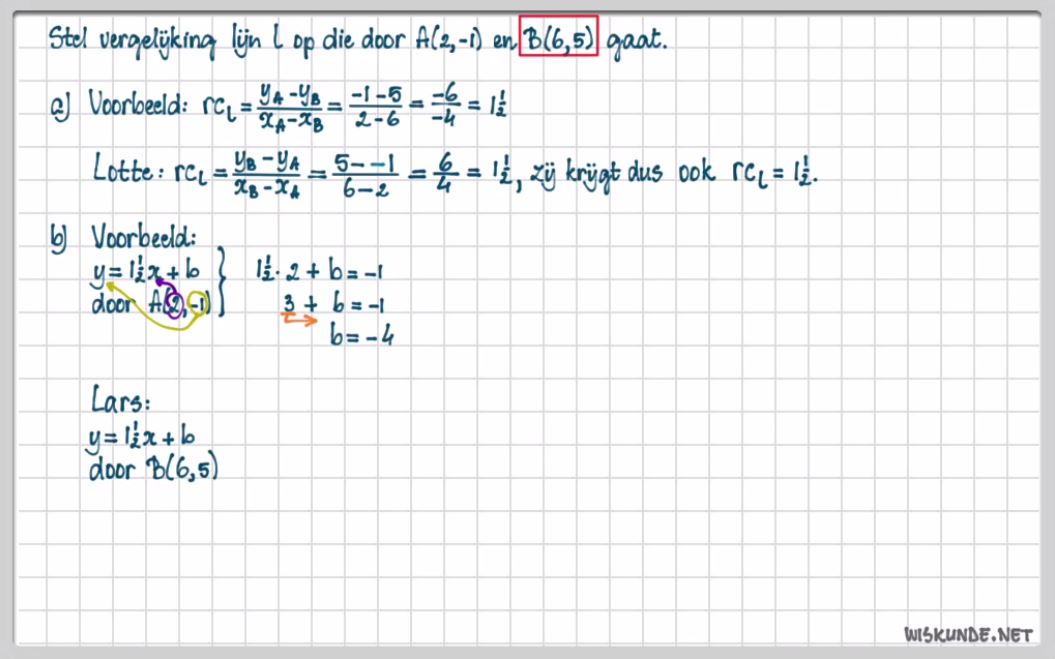 Stel vergelijking lijn l op die door A(2,-1) en B(6,5) gaat.
a) Voorbeeld: rc_l = (y_A - y_B)/(x_A - x_B) = (-1-5)/(2-6) = (-6)/(-4) = 1½
Lotte: rc_l = (y_B - y_A)/(x_B - x_A) = (5--1)/(6-2) = 6/4 = 1½, zij krijgt dus ook rc_l = 1½.
b) Voorbeeld:
y = 1½x + b } 1½ · 2 + b = -1
door A(2,-1) 3 + b = -1
b = -4
Lars:
y = 1½x + b
door B(6,5)
WISKUNDE.NET